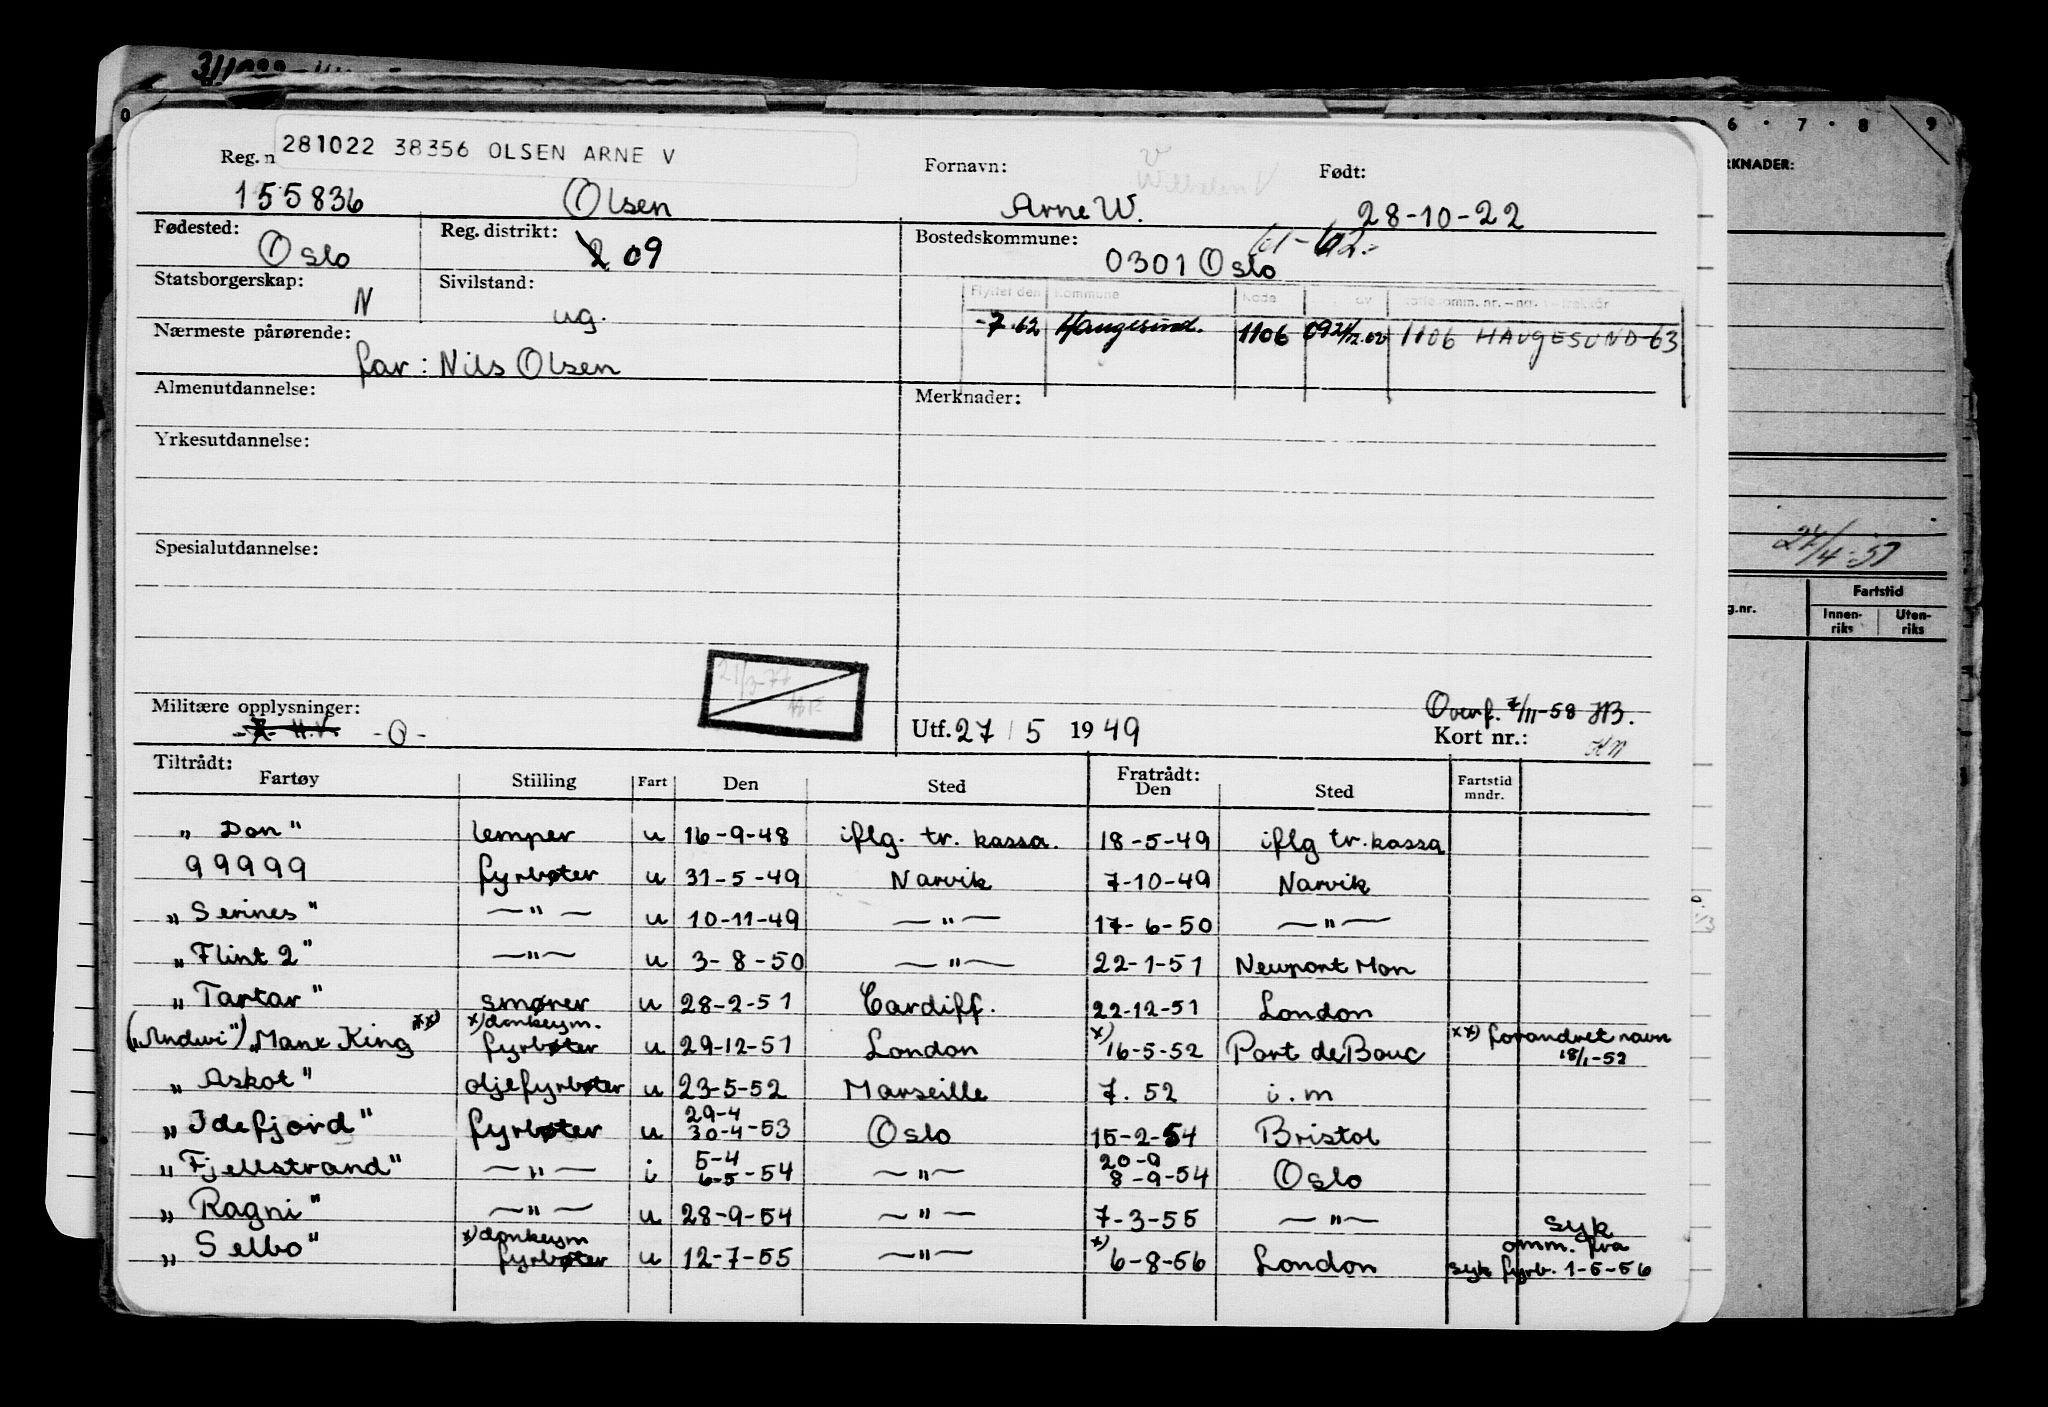 281022 38356 OLSEN ARNE V
Reg. n
Fornavn:
Wilhelm V
Født:
155836 Olsen Arne W. 28-10-22
Fødested: Oslo
Reg. distrikt: 2 09
Bostedskommune: 0301 Oslo 61-62.
Statsborgerskap: N
Sivilstand: ug.
Flyttet den Kommune Kode av
-7.62 Haugesund. 1106 09 21/12.62 1106 HAUGESUND 63
Nærmeste pårørende: far: Nils Olsen
Almenutdannelse:
Merknader:
Yrkesutdannelse:
Spesialutdannelse:
21/3-77
Militære opplysninger: H.V. -O-
Utf. 27/5 1949
Overf. 7/11-58 HB.
Kort nr.:
Tiltrådt: Fratrådt:
Fartøy Stilling Fart Den Sted Den Sted Fartstid mndr.
„Don" lemper u 16-9-48 iflg. tr. kassa. 18-5-49 iflg tr. kassa
99999 fyrbøter u 31-5-49 Narvik 7-10-49 Narvik
„Serines" —"— u 10-11-49 —"— 17-6-50 —"—
„Flint 2" —"— u 3-8-50 —"— 22-1-51 Newport Mon
„Tartar" smører u 28-2-51 Cardiff. 22-12-51 London
(„Andwi") „Manx King xx) x) donkeym. fyrbøter u 29-12-51 London x) 16-5-52 Port de Bouc xx) forandret navn 18/1-52
„Askot" oljefyrbøter u 23-5-52 Marseille 7. 52 i.m
„Idefjord" fyrbøter u 29-4 30-4-53 Oslo 15-2-54 Bristol
„Fjellstrand" —"— i 5-4 6-5-54 —"— 20-9 8-9-54 Oslo
„Ragni" —"— u 28-9-54 —"— 7-3-55 —"— syk
„Selbo" x) donkeym fyrbøter u 12-7-55 —"— x) 6-8-56 London omm. fra syk fyrb. 1-5-56
6 · 7 · 8 9
RKNADER:
24/4-57
g.nr.
Fartstid
Innen-riks Uten-riks